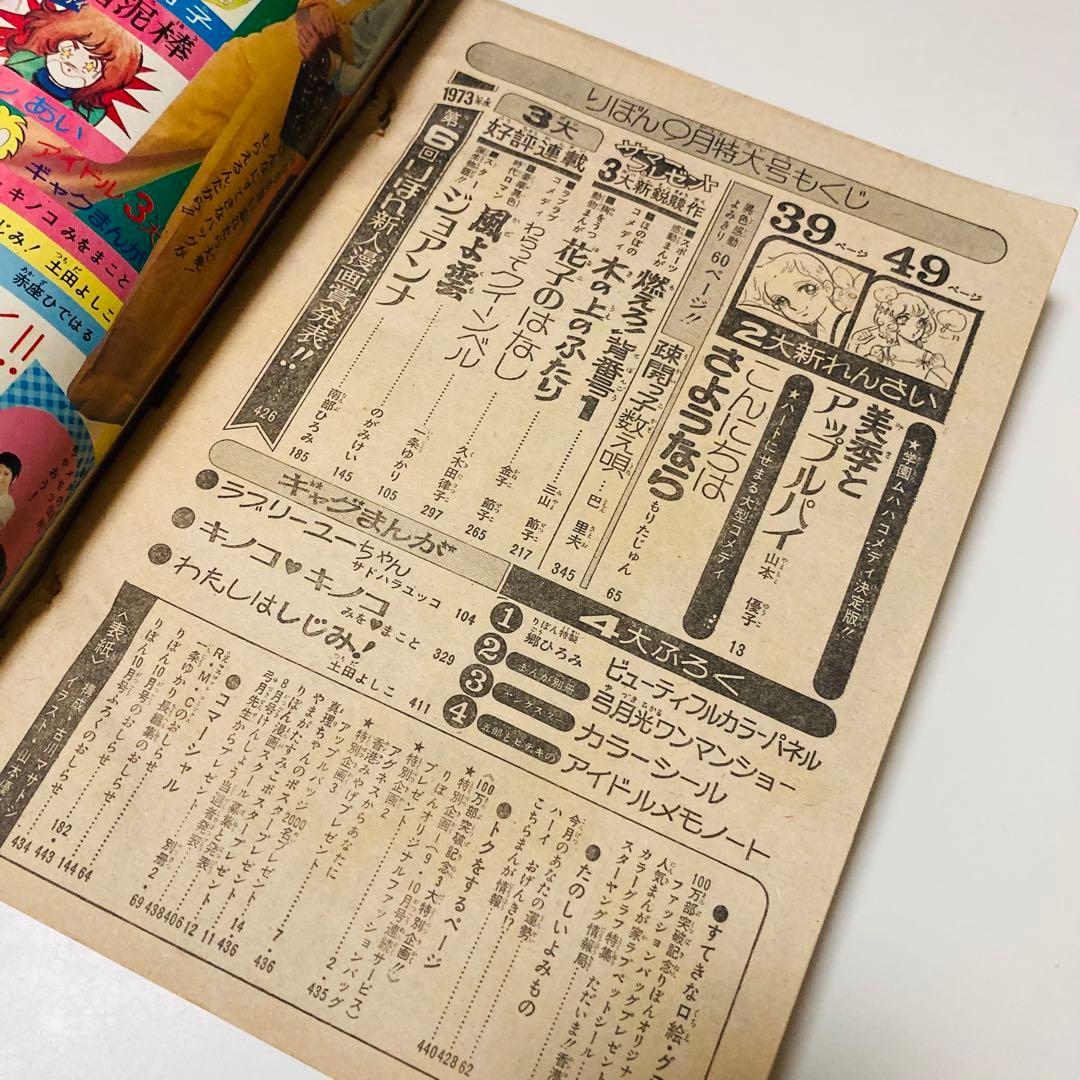 りぼん9月特大号もくじ
39ページ
49ページ
2大新れんさい
★学園ムハハコメディ決定版!!
美季とアップルパイ
山本優子
13
★ハートにせまる大型コメディ
こんにちはさようなら
もりたじゅん
65
異色感動よみきり60ページ!!
疎開っ子数え唄
巴里夫
345
サマーセット
3大新鋭競作
■スポーツ感動まんが
燃えろ!背番号1
三山節子
217
■ほのぼのコメディ
木の上のふたり
金子節子
265
■胸をうつ感動まんが
花子のはなし
久木田律子
297
3大好評連載
■ラブラブコメディ
わらってクィーンベル
一条ゆかり
105
時代ロマン
風よ雲よ
のがみけい
145
ジョアンナ
南部ひろみ
185
1973年度
第6回りぼん新人漫画賞発表!!
426
ギャグまんが
●ラブリーユーちゃん
サドハラユッコ
104
●キノコ♥キノコ
みを♥まこと
329
●わたしはしじみ!
土田よしこ
411
4大ふろく
1 りぼん特製 郷ひろみ ビューティフルカラーパネル
2 まんが別冊 弓月光ワンマンショー
3 ヤングスター カラーシール
4 五郎とヒデキの アイドルメモノート
●すてきな口絵・グ
100万部突破記念りぼんオリジナ
ファッションバッグプレゼント
人気まんが家ラブペットシール
カラーグラフ特集
スターヤング情報局
ただいま!!香港
●たのしいよみもの
今月のあなたの運勢
ハーイ おげんき!?
こちらまんが情報
440 428 62
●トクをするページ
《100万部突破記念3大特別企画!!》
特別企画1(9・10月号連続サービス)
りぼんオリジナルファッションバッグ
プレゼント
2・435
特別企画2
アグネスからあなたに
香港みやげプレゼント
7・436
特別企画3
★アップルバッジ2000名プレゼント
14・436
真理ちゃんの
やまがたすみこポスタープレゼント
11
りぼん漫画スクール
8月号けんしょう当選者発表
弓月先生からプレゼント
別冊2・69
●コマーシャル
R・M・Cのおしらせ
182・434
一条ゆかり長編集のおしらせ
443
りぼん10月号のおしらせ
144
りぼん10月号ふろくのおしらせ
64
〈表紙〉構成・古川マサト
イラスト・山本優子
泥棒
あい
アイドル3大
ギャグまんが
キノコ みをまこと
じみ! 土田よしこ
赤座ひではる